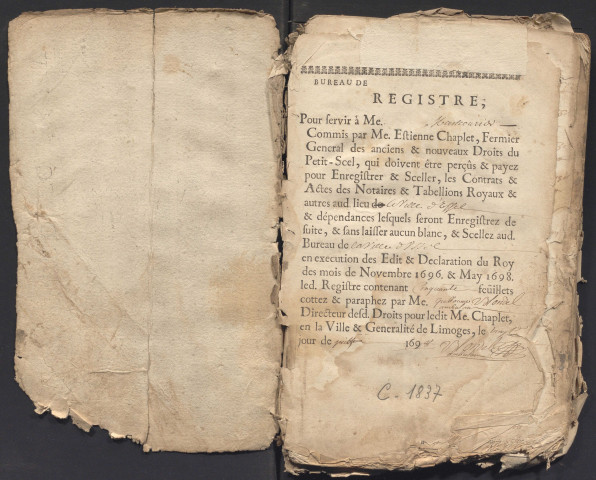 BUREAU DE
REGISTRE,
Pour servir à Me.
Commis par Me. Estienne Chaplet, Fermier
General des anciens & nouveaux Droits du
Petit-Scel, qui doivent être perçûs & payez
pour Enregistrer & Sceller, les Contrats &
Actes des Notaires & Tabellions Royaux &
autres aud. lieu de
& dépendances lesquels seront Enregistrez de
suite, & sans laisser aucun blanc, & Scellez aud.
Bureau de
en execution des Edit & Declaration du Roy
des mois de Novembre 1696. & May 1698.
led. Registre contenant feuillets
cottez & paraphez par Me.
Directeur desd. Droits pour ledit Me. Chaplet,
en la Ville & Generalité de Limoges, le
jour de 169
C-1837